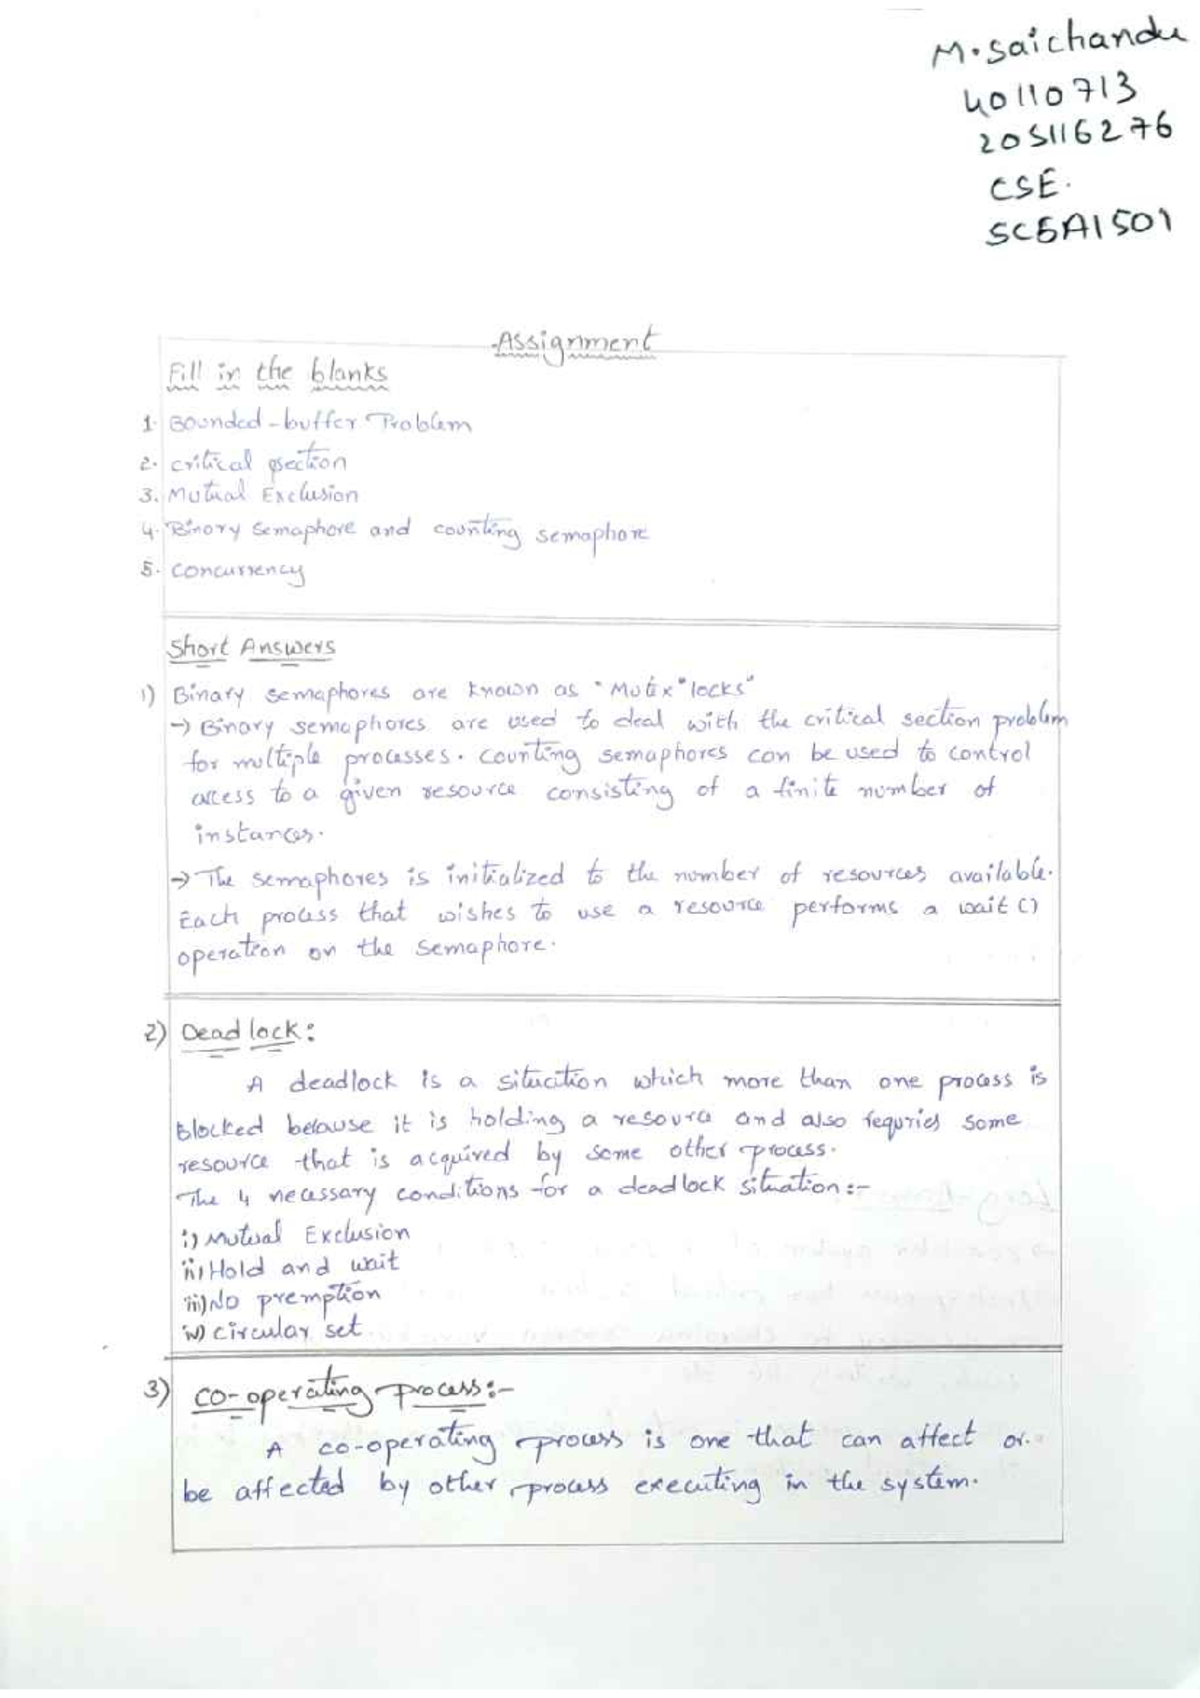 M.saichandu
40110713
205116276
CSE.
SCSA1501
Assignment
Fill in the blanks
1. Bounded-buffer Problem
2. critical section
3. Mutual Exclusion
4. Binary semaphore and counting semaphore
5. concurrency
Short Answers
1) Binary semaphores are known as "Mutex" locks"
→ Binary semaphores are used to deal with the critical section problem
for multiple processes. counting semaphores can be used to control
access to a given resource consisting of a finite number of
instances.
→ The semaphores is initialized to the number of resources available.
Each process that wishes to use a resource performs a wait()
operation on the semaphore.
2) Dead lock:
A deadlock is a situcition which more than one process is
Blocked because it is holding a resource and also requries some
resource that is acquired by some other process.
The 4 necessary conditions for a deadlock situation:-
i) Mutual Exclusion
ii) Hold and wait
iii) No premption
iv) circular set
3) co-operating process:-
A co-operating process is one that can affect or
be affected by other process executing in the system.